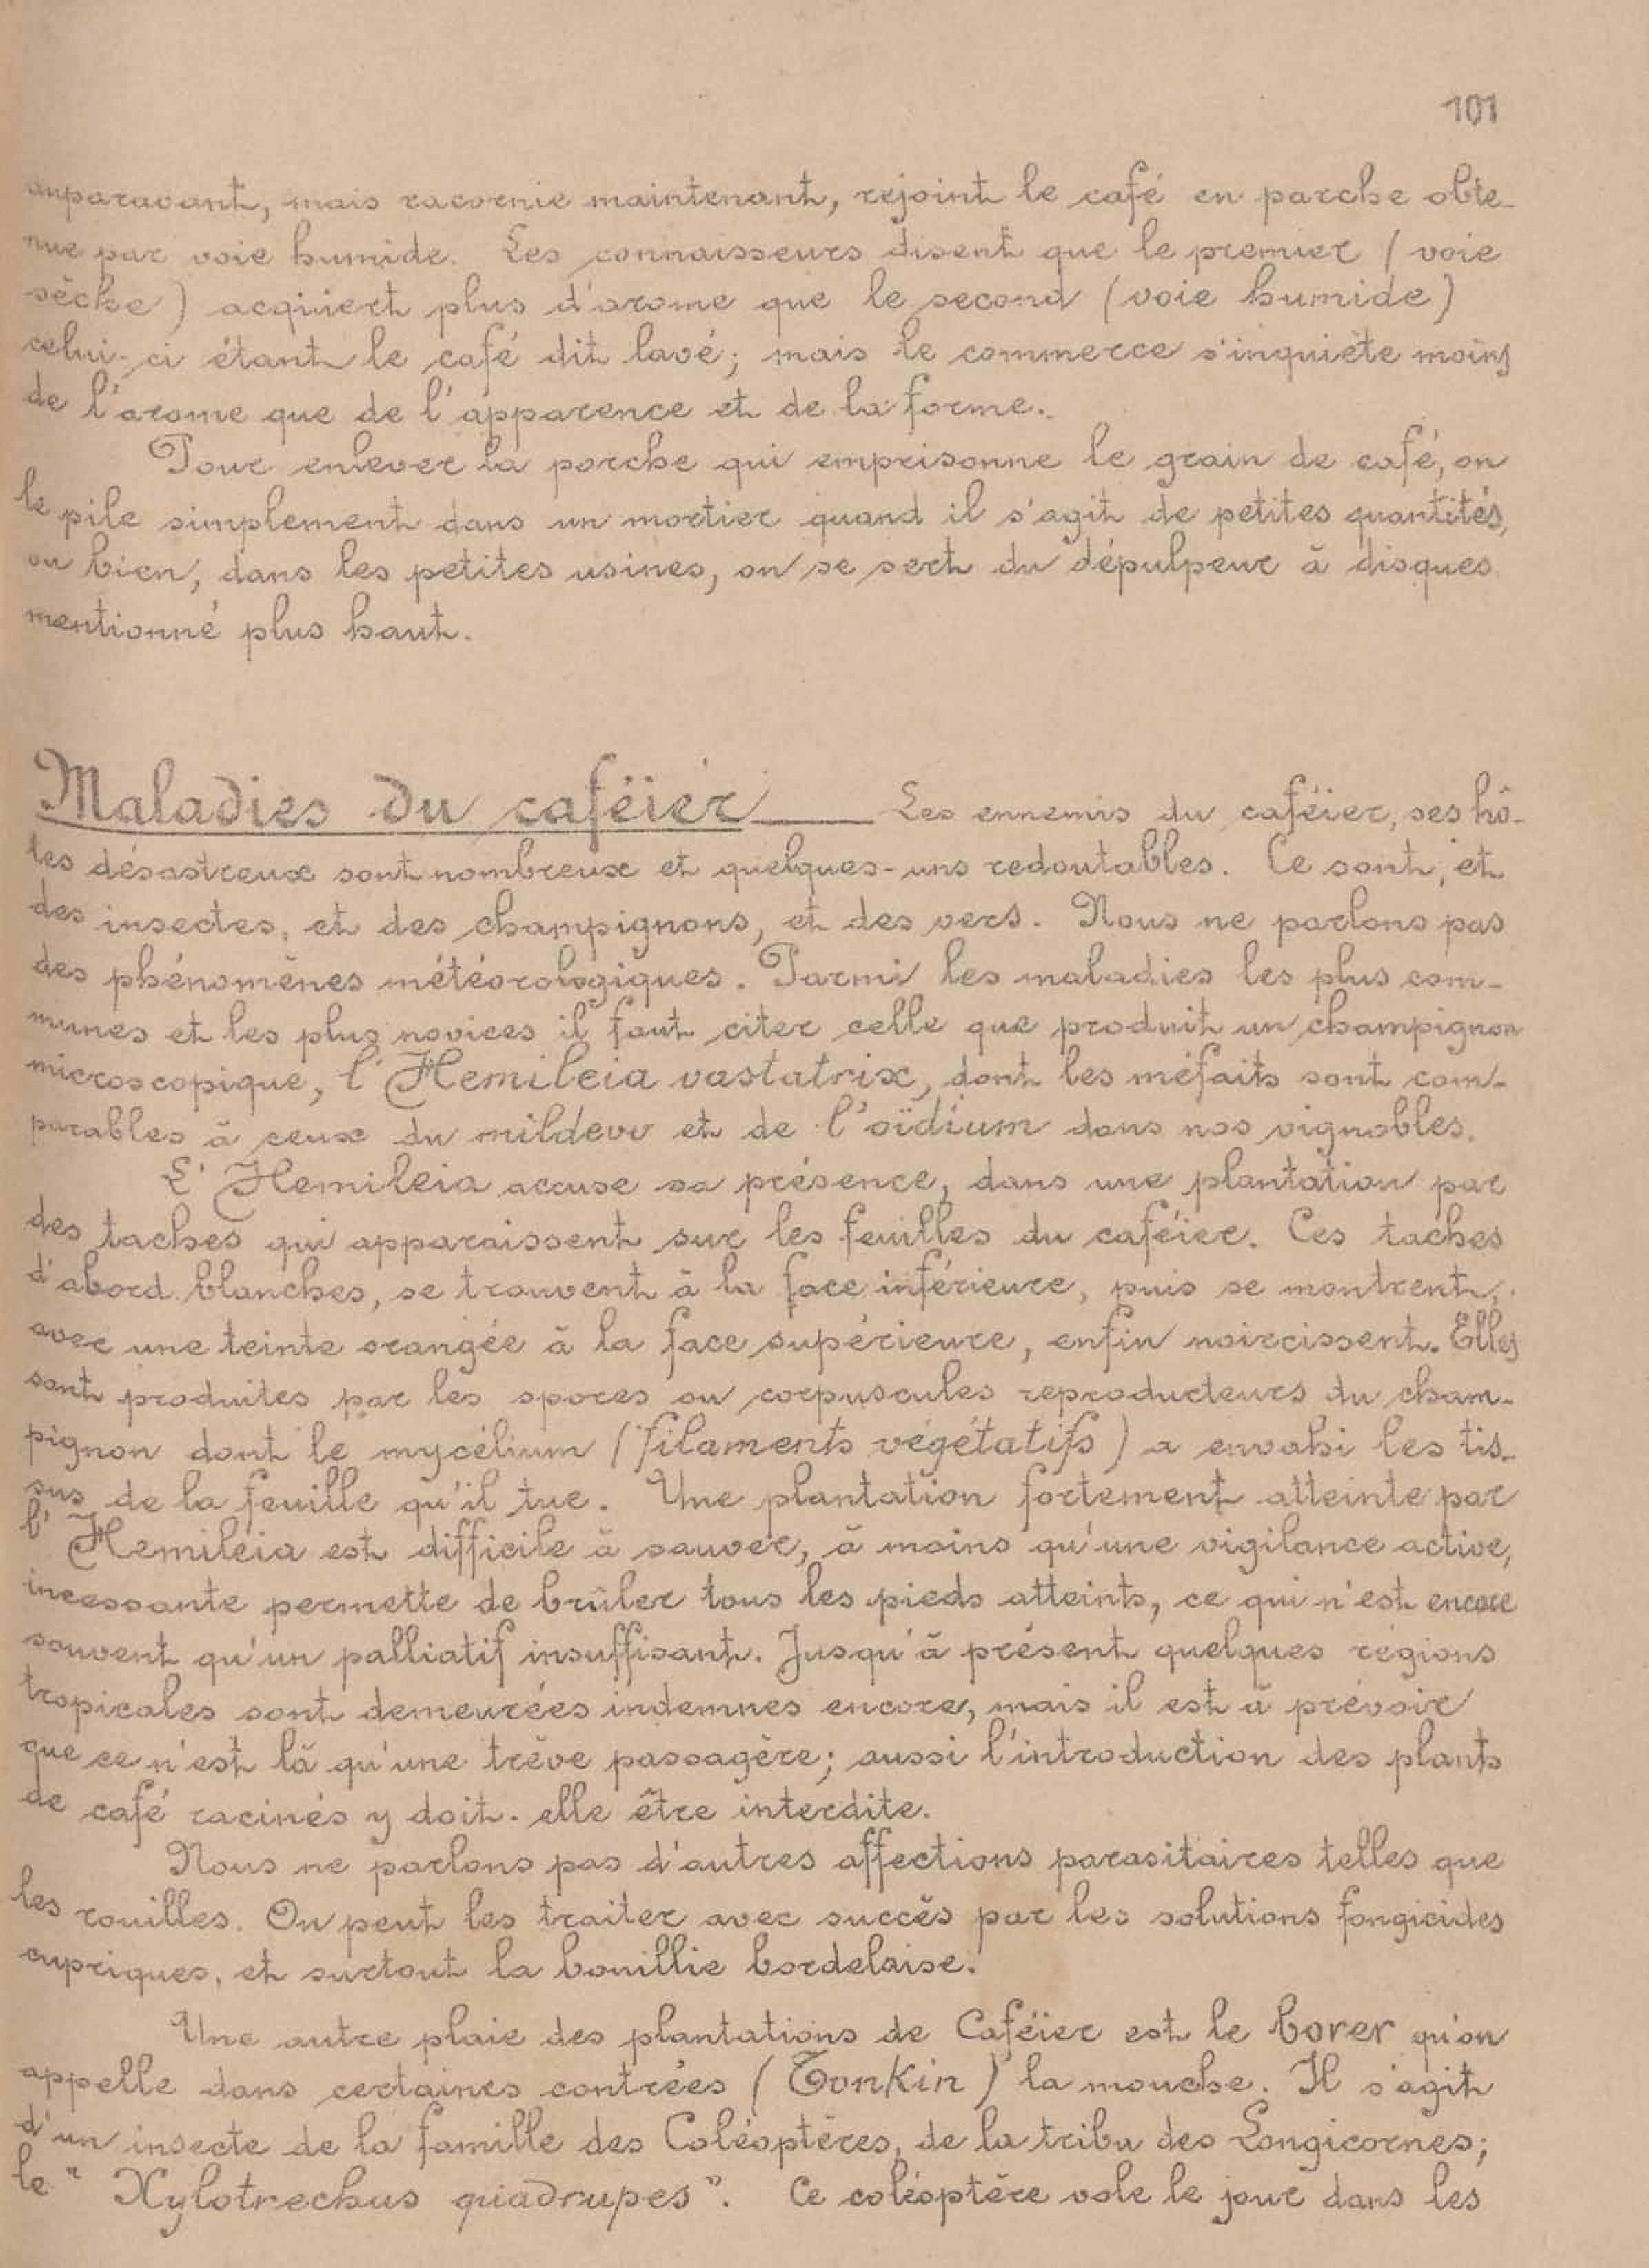 101
auparavant, mais racornie maintenant, rejoint le café en parche obte-
nue par voie humide. Les connaisseurs disent que le premier (voie
sèche) acquiert plus d'arome que le second (voie humide)
celui-ci étant le café dit lavé; mais le commerce s'inquiète moins
de l'arome que de l'apparence et de la forme.
Pour enlever la parche qui emprisonne le grain de café, on
le pile simplement dans un mortier quand il s'agit de petites quantités,
ou bien, dans les petites usines, on se sert du dépulpeur à disques
mentionné plus haut.
Maladies du caféier — Les ennemis du caféier, ses hô-
tes désastreux sont nombreux et quelques-uns redoutables. Ce sont, et
des insectes, et des champignons, et des vers. Nous ne parlons pas
des phénomènes météorologiques. Parmi les maladies les plus com-
munes et les plus novices il faut citer celle que produit un champignon
microscopique, l'Hemileia vastatrix, dont les méfaits sont com-
parables à ceux du mildew et de l'oïdium dans nos vignobles.
L'Hemileia accuse sa présence, dans une plantation par
des taches qui apparaissent sur les feuilles du caféier. Ces taches
d'abord blanches, se trouvent à la face inférieure, puis se montrent,
avec une teinte orangée à la face supérieure, enfin noircissent. Elles
sont produites par les spores ou corpuscules reproducteurs du cham-
pignon dont le mycélium (filaments végétatifs) a envahi les tis-
sus de la feuille qu'il tue. Une plantation fortement atteinte par
l'Hemileia est difficile à sauver, à moins qu'une vigilance active,
incessante permette de brûler tous les pieds atteints, ce qui n'est encore
souvent qu'un palliatif insuffisant. Jusqu'à présent quelques régions
tropicales sont demeurées indemnes encore, mais il est à prévoir
que ce n'est là qu'une trève passagère; aussi l'introduction des plants
de café racinés y doit-elle être interdite.
Nous ne parlons pas d'autres affections parasitaires telles que
les rouilles. On peut les traiter avec succès par les solutions fongicides
cupriques, et surtout la bouillie bordelaise.
Une autre plaie des plantations de Caféier est le borer qu'on
appelle dans certaines contrées (Tonkin) la mouche. Il s'agit
d'un insecte de la famille des Coléoptères, de la tribu des Longicornes;
le "Xylotrechus quadrupes". Ce coléoptère vole le jour dans les